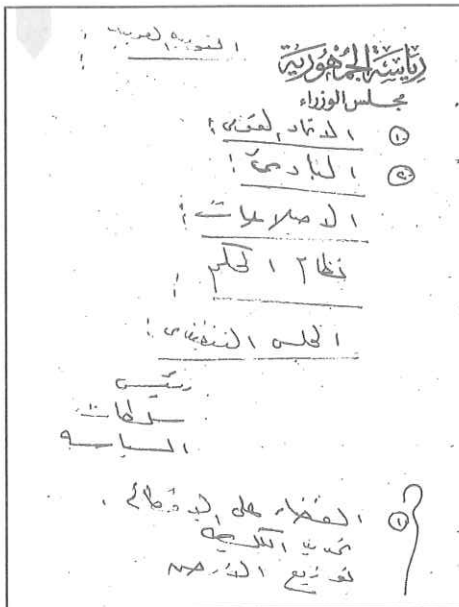 القومية العربية :
رياسة الجمهورية
مجلس الوزراء
① الاتحاد القومى :
② المبادئ :
الاصلاحيات :
نظام الحكم :
المجلس التنفيذى :
رئيس
سلطات
السياسه
① القضاء على الإقطاع .
تحديد الملكيه
توزيع الأرض